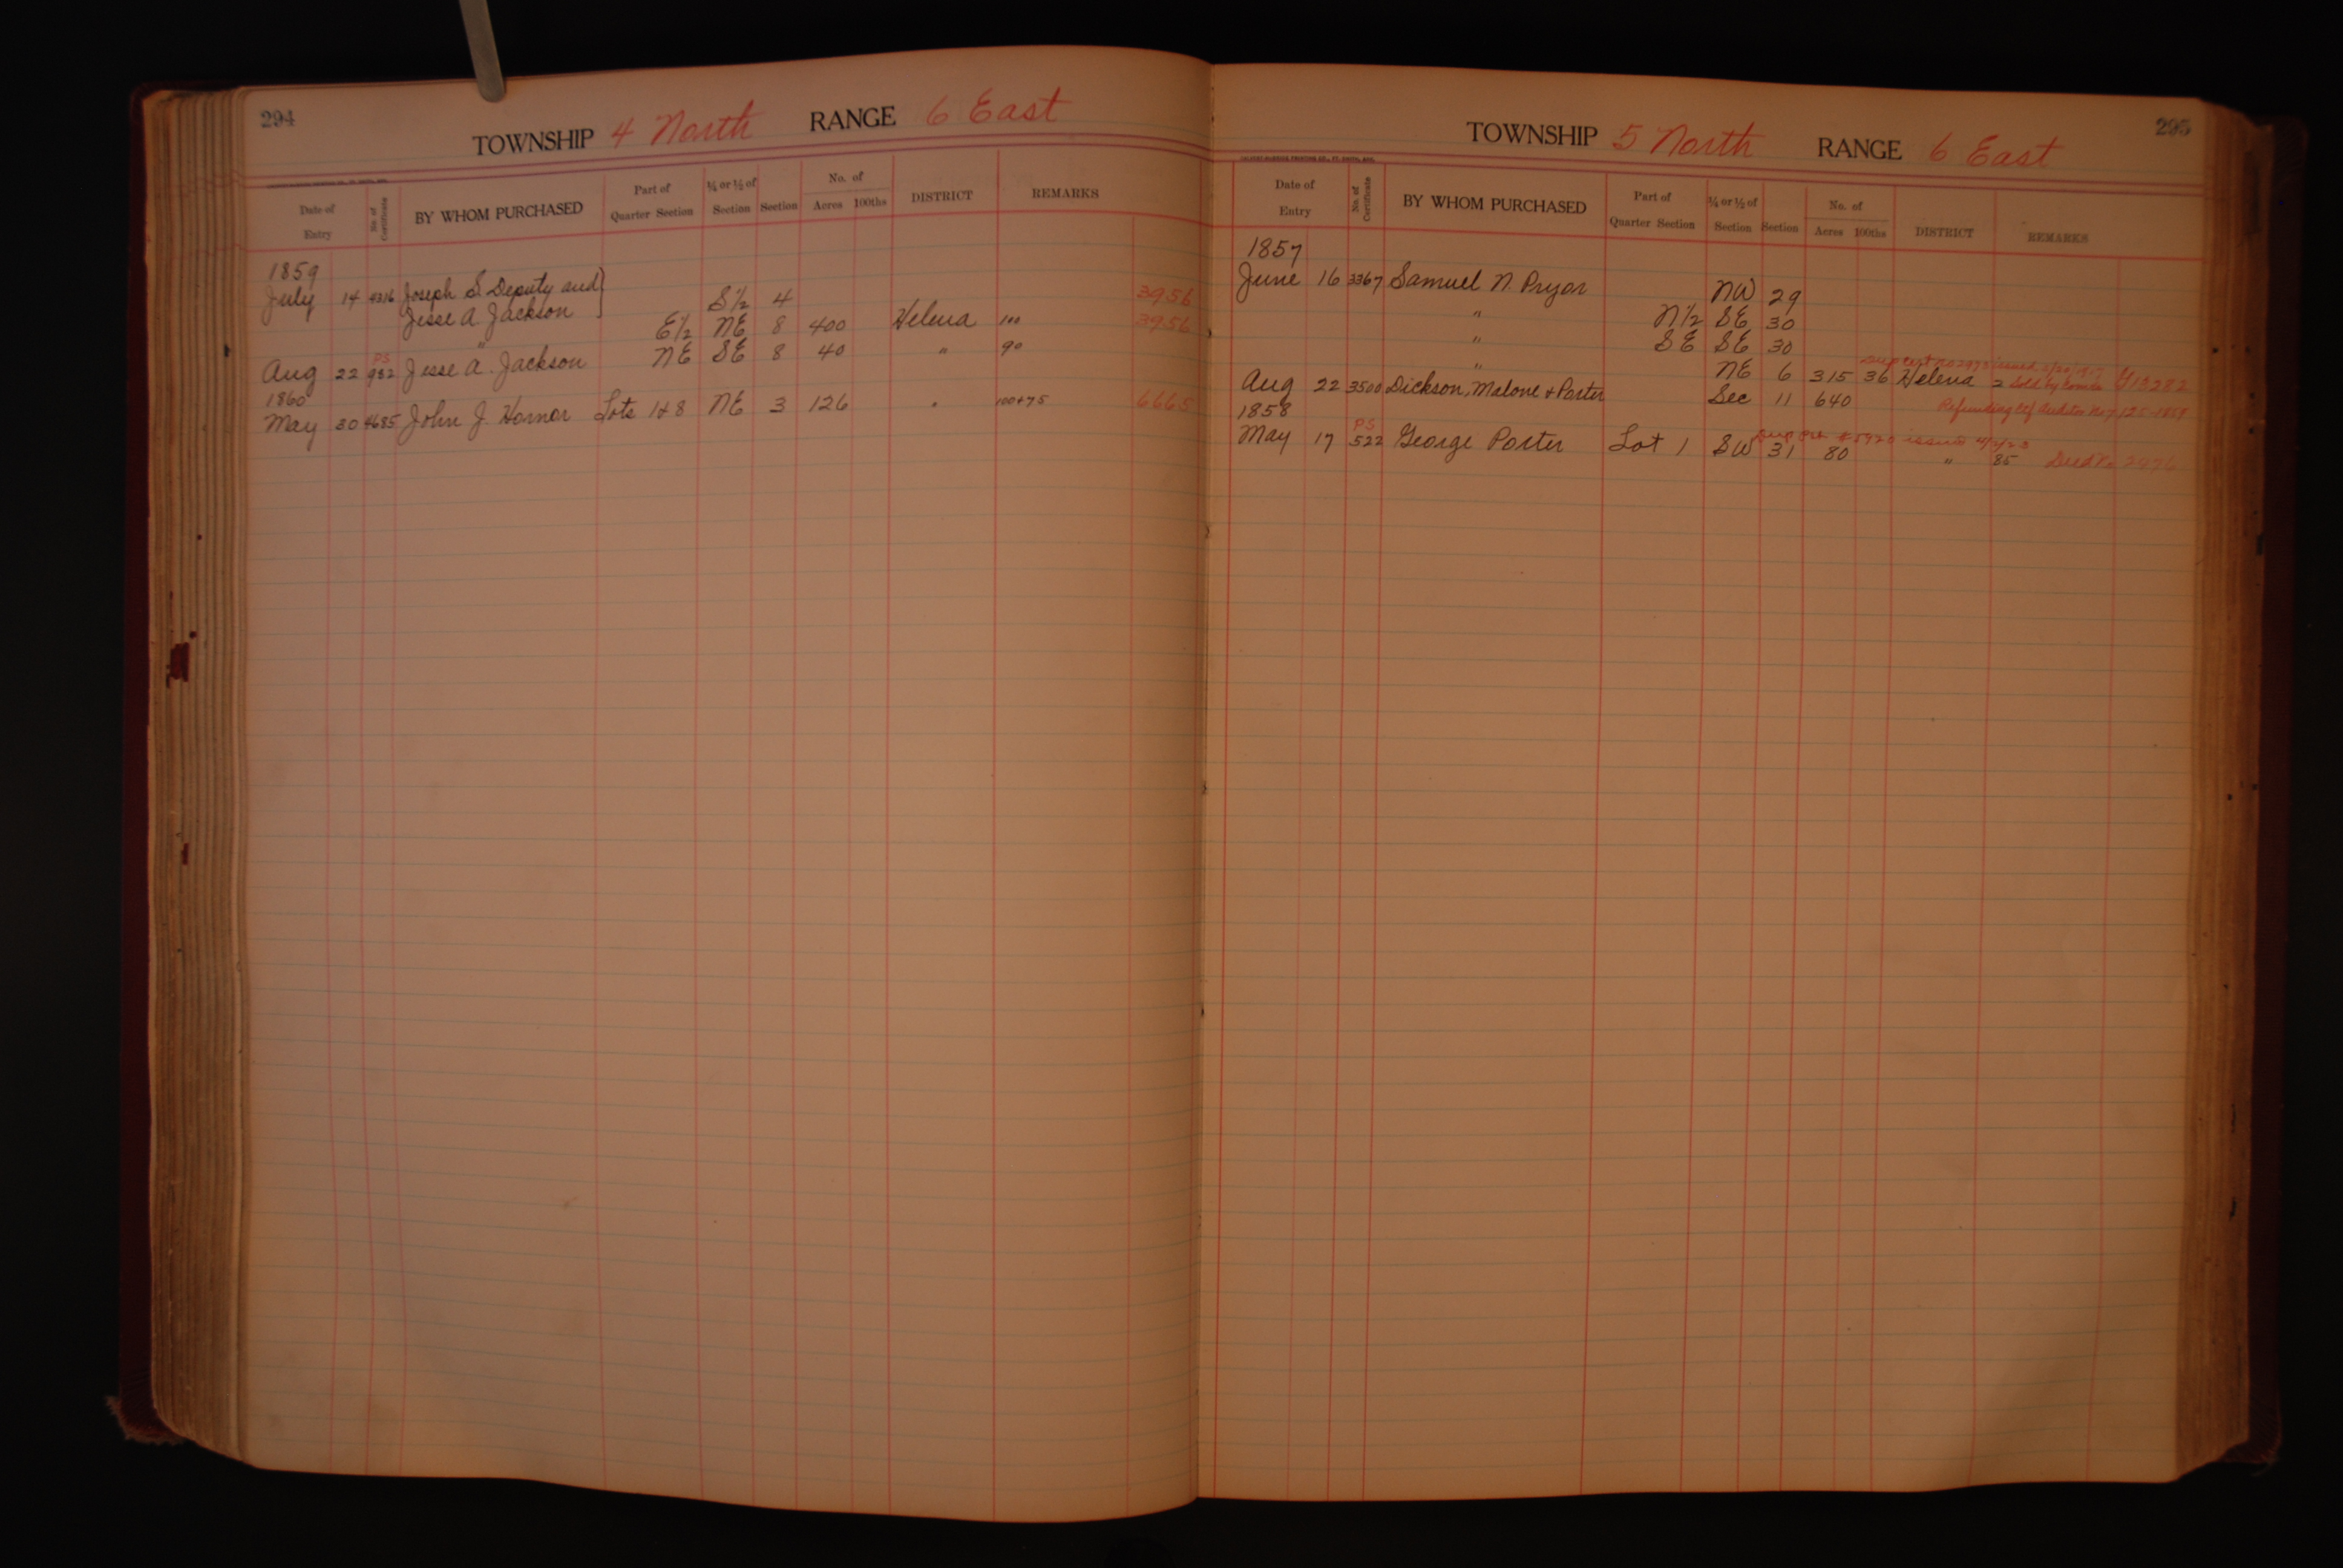 294
TOWNSHIP 4 North RANGE 6 East
Date of Entry No. of Certificate BY WHOM PURCHASED Part of Quarter Section ¼ or ½ of Section Section No. of Acres 100ths DISTRICT REMARKS
1859
July 14 4316 Joseph S. Deputy and
Jesse A Jackson S½ 4 3956
" E½ NE 8 400 Helena 100 3956
PS
Aug 22 932 Jesse A. Jackson NE SE 8 40 " 90
1860
May 30 4685 John J. Hornor Lots 1+8 NE 3 126 " 100+75 6665
295
TOWNSHIP 5 North RANGE 6 East
Date of Entry No. of Certificate BY WHOM PURCHASED Part of Quarter Section ¼ or ½ of Section Section No. of Acres 100ths DISTRICT REMARKS
1857
June 16 3367 Samuel N Pryor NW 29
" N½ SE 30
" SE SE 30
issued
" NE 6 315 36 Helena 2 Sold by 13282
Aug 22 3500 Dickson, Malone + Porter Sec 11 640 Refunding Auditor No 7125-1869
1858
PS issued 4/2/23
May 17 522 George Porter Lot 1 SW 31 80 " 85 Deed No 2976